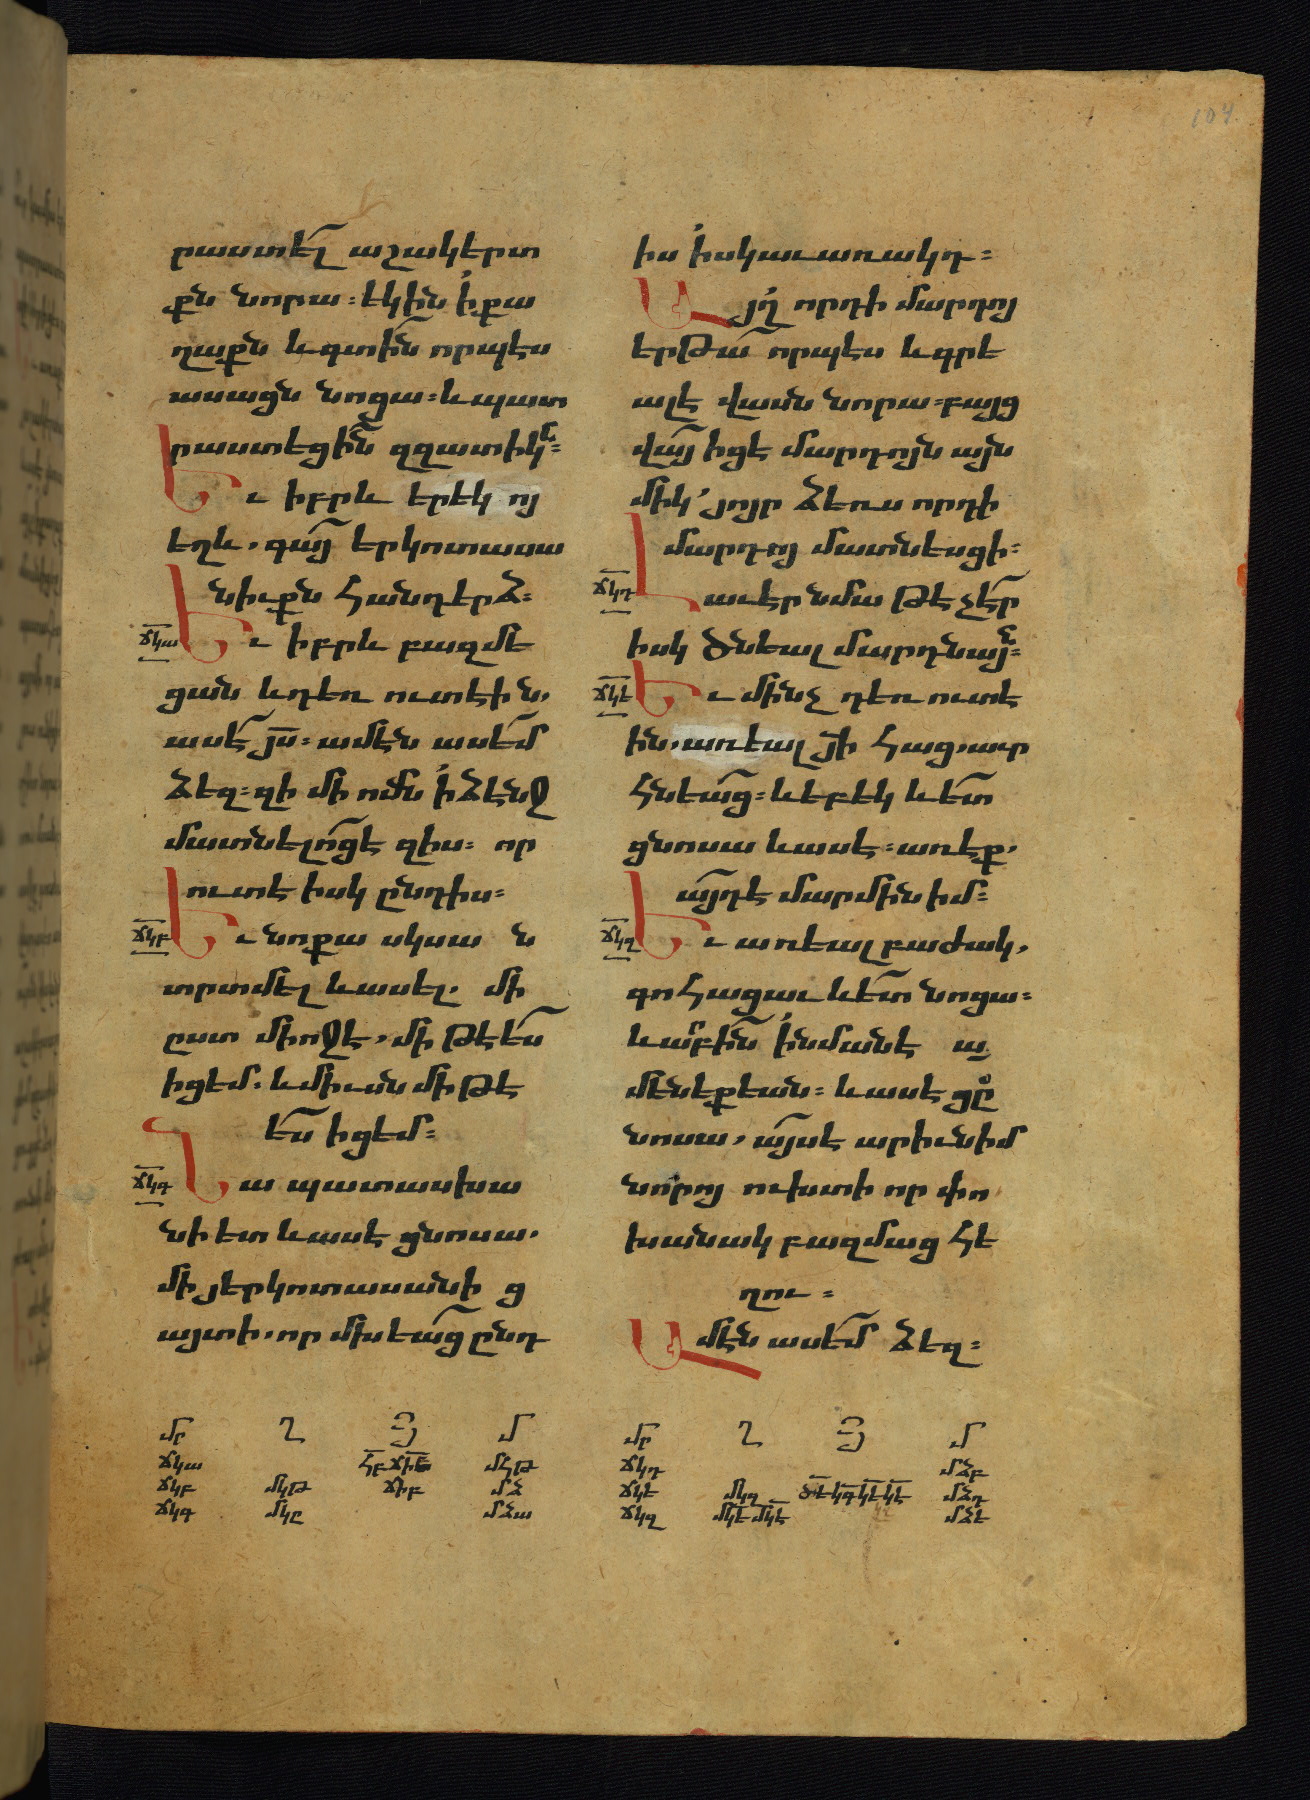 րաստել աշակերտ
քն նորա։ եկին ի քա
ղաքն և գտին որպէս
ասացն նոցա։ և պատ
րաստեցին զզատիկն։
Եւ իբրև երեկ ոյ
եղև, գայ երկոտասա
նիւքն հանդերձ։
ճկա Եւ իբրև բազմե
ցան և դեռ ուտէին,
ասէ յս։ ամէն ասեմ
ձեզ։ զի մի ոմն ի ձէնջ
մատնելոց է զիս։ որ
ուտէ իսկ ընդ իս։
ճկբ Եւ նոքա սկսա ն
տրտմել և ասել. մի
ըստ միոջէ, մի թէ ես
իցեմ. և միւսն մի թէ
ես իցեմ։
ճկգ Նա պատասխա
նի ետ և ասէ ցնոսա.
մի յերկոտասանի ց
այտի. որ մխեաց ընդ
իս ի սկաւառակդ։
Այղ որդի մարդոյ
երթա որպէս և գրե
ալ է վասն նորա։ բայց
վայ իցէ մարդոյն այն
միկ՛ յոյր ձեռս որդի
մարդոյ մատնեսցի։
ճկդ Լաւ էր նմա թէ չէր
իսկ ծնեալ մարդն այն։
ճկե Եւ մինչ դեռ ուտէ
ին. առեալ յի հաց, աւր
հնեաց։ և եբեկ և ետ
ցնոսա և ասէ։ առէք,
այդ է մարմին իմ։
ճկզ Եւ առեալ բաժակ,
գոհացաւ և ետ նոցա։
և արբին ի նմանէ ա
մենեքեան։ և ասէ ցը
նոսա, այս է արիւն իմ
նորոյ ուխտի որ փո
խանակ բազմաց հե
ղու ։
Ամէն ասեմ ձեզ։
մր Ղ Յ Մ
ճկա հբ մհթ
ճկբ մկթ ճիբ մձ
ճկգ մկը մձա
մր Ղ Յ Մ
ճկդ մձբ
ճկե մկզ մձդ
ճկզ մձե